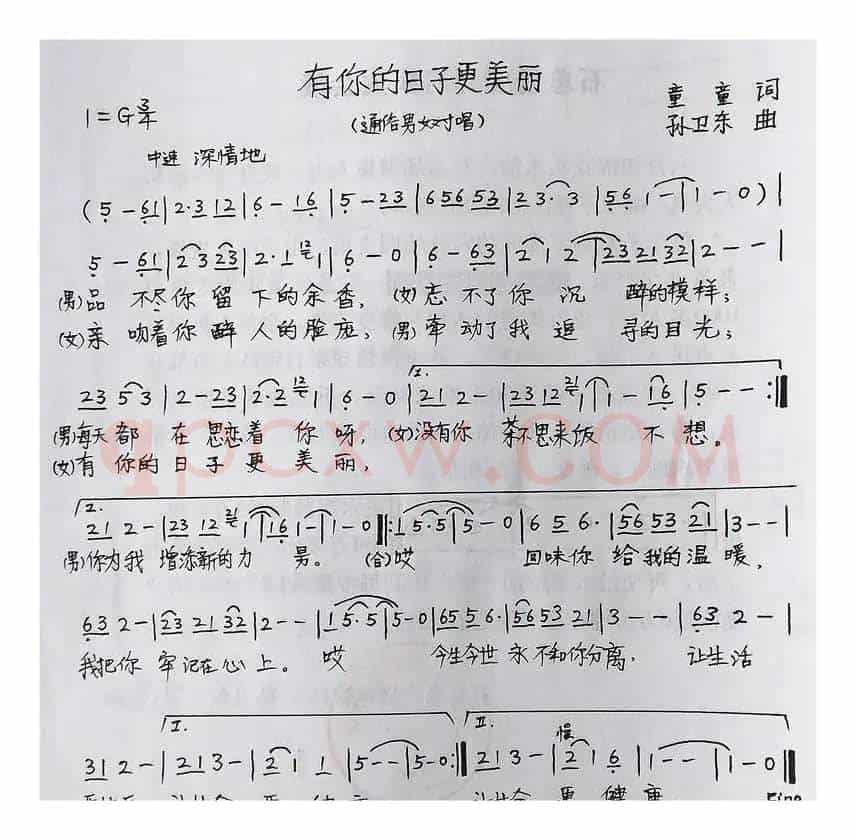 有你的日子更美丽
1=G 3/4
(通俗男女对唱)
童童 词
孙卫东 曲
中速 深情地
(5 - 61|2·3 12|6 - 16|5 - 23|656 53|23· 3|56 1 -|1 - 0)|
5 - 61|23 23|2·1 12|1|6 - 0|6 - 63|21 2|23 21 32|2 - -|
(男)品 不尽你 留 下的余香, (女)忘 不了你 沉 醉的模样;
(女)亲 吻着你 醉 人的脸庞, (男)牵 动了我 追 寻的目光;
1.
23 5 3|2 - 23|2·2 12 1|6 - 0|21 2 -|23 12 21 1|1 - 16|5 - -:|
(男)每天 都 在 思恋着 你 呀, (女)没有你 茶不思来饭 不 想。
(女)有 你的 日 子 更 美 丽,
2.
21 2 -|23 12 31 1|1 16 1 -|1 - 0:|:1 5·5|5 - 0|6 5 6·|56 53 21|3 - -|
(男)你为我 增添新的力 男。 (合)哎 回味你 给我的温 暖,
63 2 -|23 21 32|2 - -|1 5·5|5 - 0|65 5 6·|56 53 21|3 - -|63 2 -|
我把你 牢记在心 上。 哎 今生今世 永不和你分离. 让生活
I. II.
慢
31 2 -|21 3 -|2 1 1|5 - -|5 - 0:|21 3 -|2 1 6|1 - -|1 - 0|
Fine
qpcxw.COM